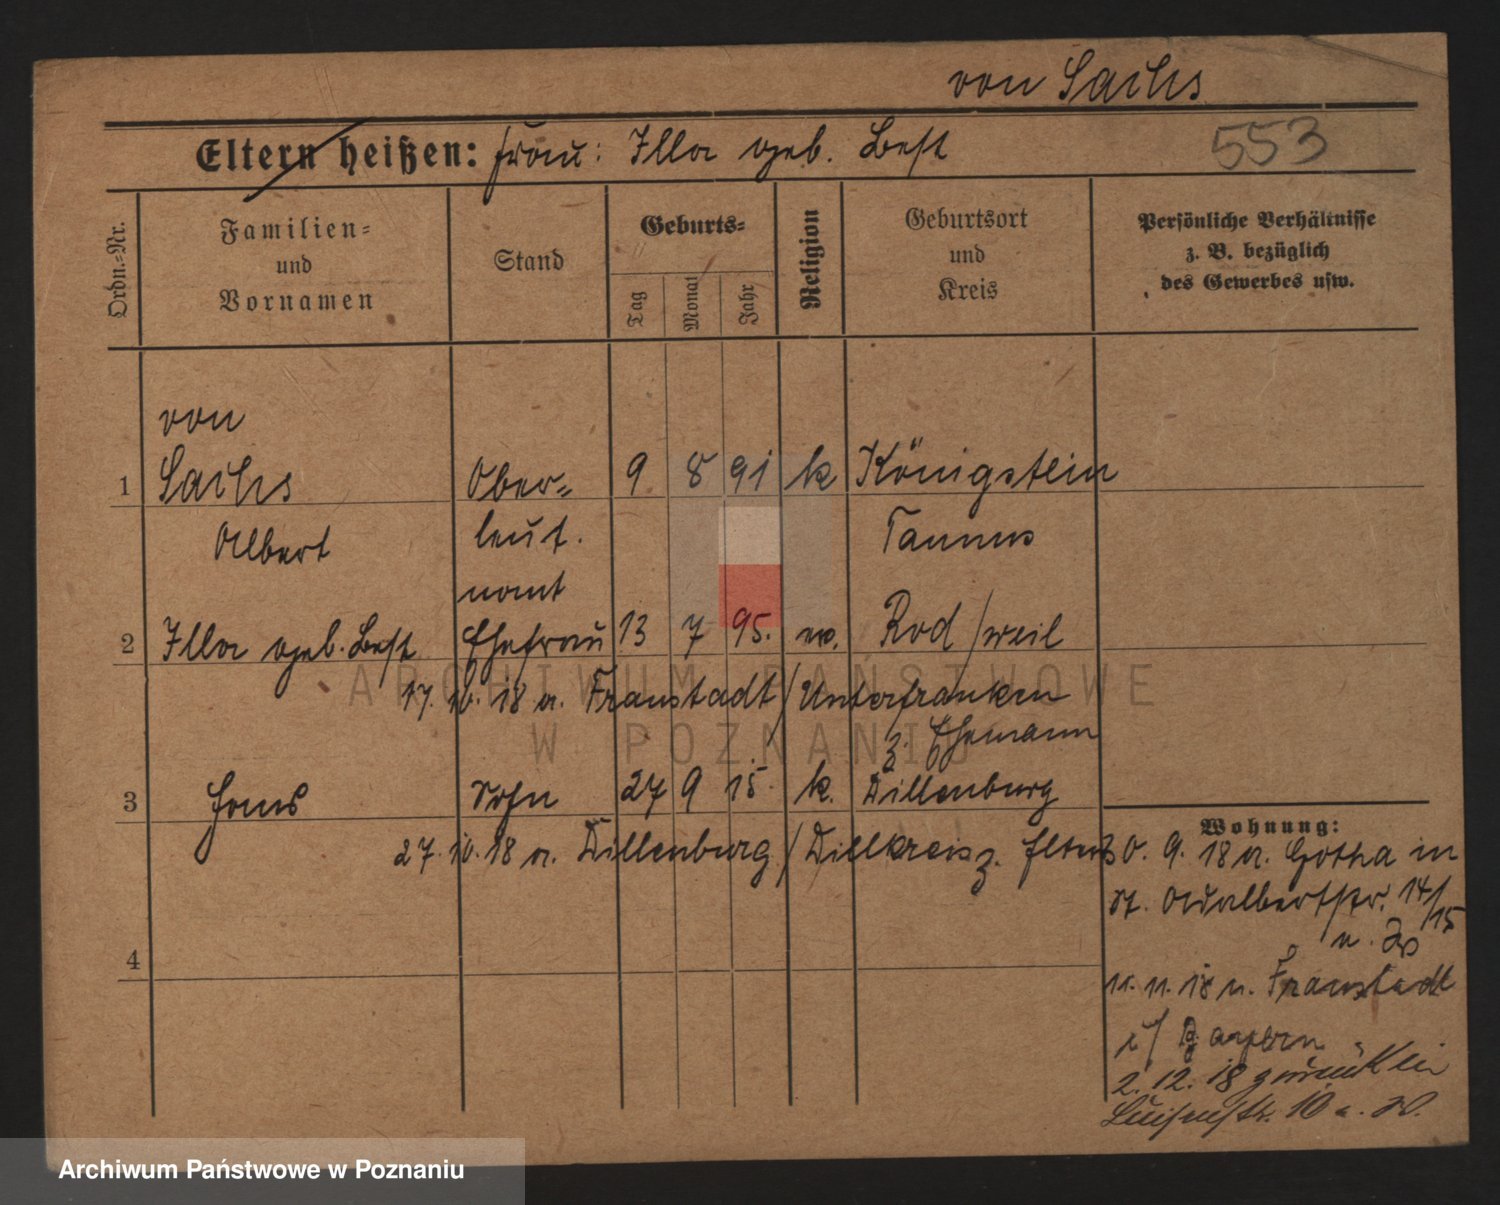 von Sachs
Eltern heißen: Frau: Illa geb. Best
553
Ordn.-Nr.
Familien-
und
Vornamen
Stand
Geburts-
Tag
Monat
Jahr
Religion
Geburtsort
und
Kreis
Persönliche Verhältnisse
z. B. bezüglich
des Gewerbes usw.
von
1 Sachs Ober- 9. 8 91 k Königstein
Albert leut. Taunus
nant
2 Illa geb. Best Ehefrau 13 7 95. ev. Rod / weil
17. 10. 18 a. Fraustadt / Unterfranken
z. Ehemann
3 Hans Sohn 27 9 15. k. Dillenburg
27. 10. 18 a. Dillenburg / Dillkreis z. Eltern
4
Wohnung:
30. 9. 18 a. Gotha in
St. Adalbertstr. 14/15
11. 11. 18 n. Fraustadt
i/ Bayern
2. 12. 18 zurück in
Luisenstr. 10
ARCHIWUM PAŃSTWOWE
W POZNANIU
Archiwum Państwowe w Poznaniu